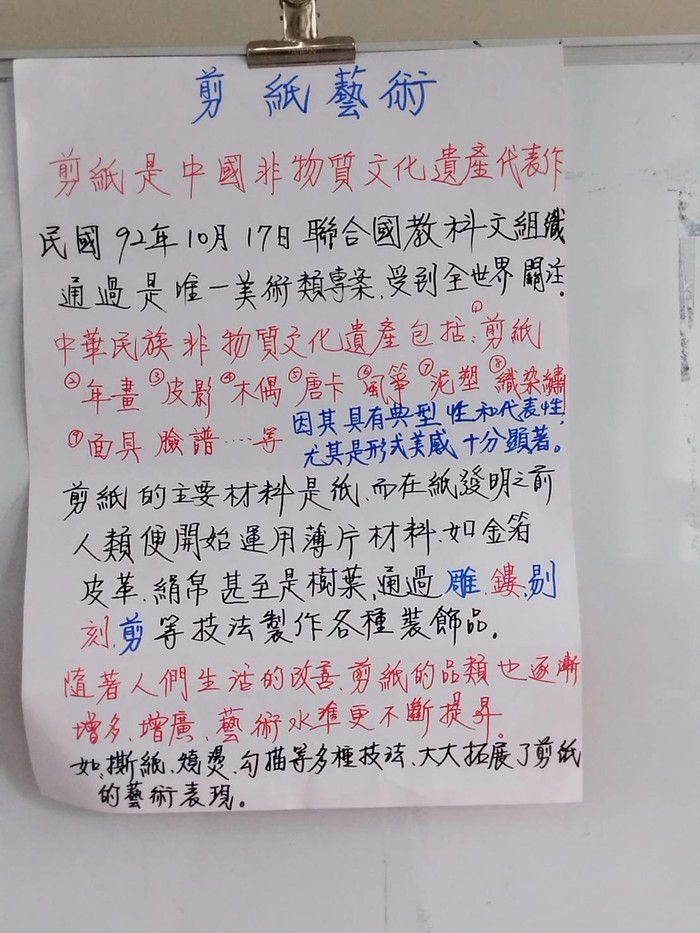 剪紙藝術
剪紙是中國非物質文化遺產代表作
民國92年10月17日聯合國教科文組織
通過是唯一美術類專案、受到全世界關注.
中華民族非物質文化遺產包括:①剪紙
②年畫③皮影④木偶⑤唐卡⑥風箏⑦泥塑⑧織染繡
⑨面具 臉譜……等
因其具有典型性和代表性,
尤其是形式美感十分顯著。
剪紙的主要材料是紙、而在紙發明之前
人類便開始運用薄片材料、如金箔
皮革、絹帛甚至是樹葉、通過雕、鏤、剔
刻、剪等技法製作各種裝飾品。
隨著人們生活的改善、剪紙的品類也逐漸
增多、增廣、藝術水準更不斷提昇。
如:撕紙、燒燙、勾描等多種技法、大大拓展了剪紙
的藝術表現。